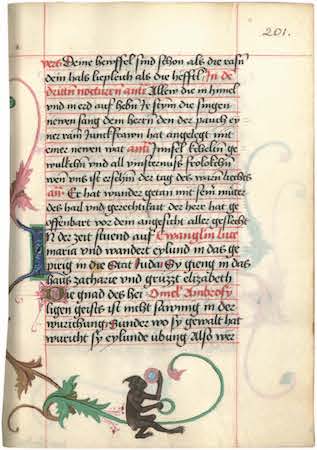 201.
vers Deine heuffel sind schon als die
dein hals liepleich als die heffel In de
dritten nocturn anti Allew die in himel
vnd in erd auf hebn ir stym die singen
newen sang dem herrn den der pauch ey
ner rain Junckfrawn hat angelegt mit
einer newen wat anti Himel
vnd all vinsternuss frolokchen
wen vns ist erschin der tag des warn liechts
an Er hat wunder getan mit sein
des hail vnd gerechtikait der herr hat ge
offenbart vor dem angesicht aller geslecht
In der zeit stuend auf Ewangelium luce
maria vnd wandert eylund in das ge
pirig in die Stat Juda Sy gieng in das
haus zacharie vnd gruzzt elizabeth
Die gnad des hei Omel Ambrosy
ligen geists ist nicht sawmig in der
wurchung Sunder wo sy gewalt hat
wurcht sy eylunde ubung Also wer